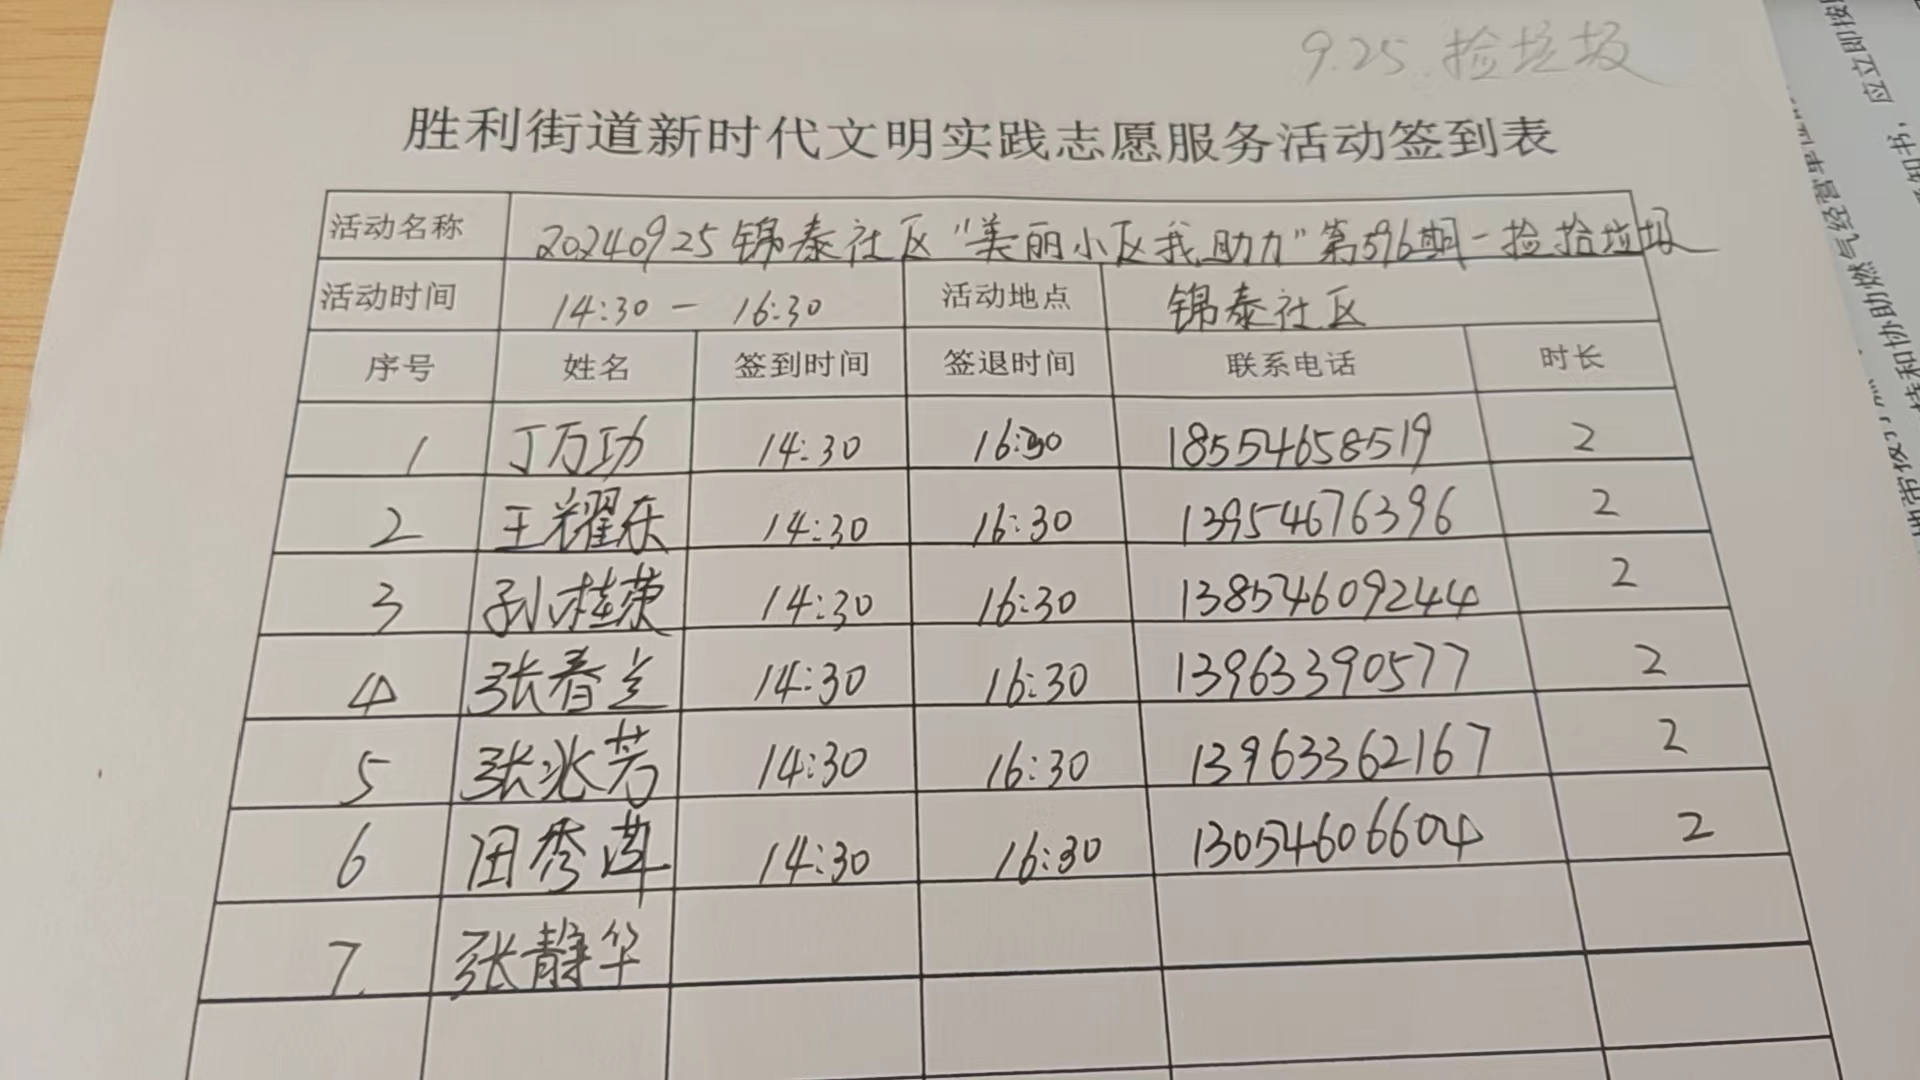 9.25.捡垃圾
胜利街道新时代文明实践志愿服务活动签到表
活动名称 20240925锦泰社区“美丽小区我助力”第596期-捡拾垃圾
活动时间 14:30 - 16:30 活动地点 锦泰社区
序号 姓名 签到时间 签退时间 联系电话 时长
1 丁万功 14:30 16:30 18554658519 2
2 王耀东 14:30 16:30 13954676396 2
3 孙桂荣 14:30 16:30 13854609244 2
4 张春兰 14:30 16:30 13963390577 2
5 张兆芳 14:30 16:30 13963362167 2
6 田秀莲 14:30 16:30 13054606604 2
7. 张静华
应立即按
燃气经营
持和协助